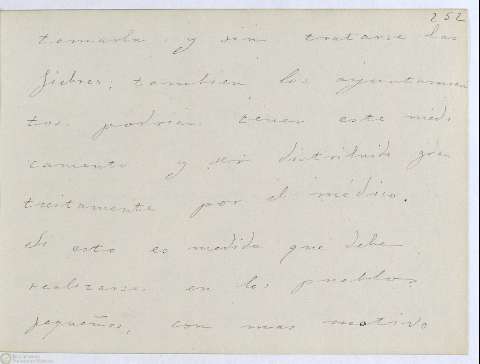 252
tomarla y sin tratarse las
fiebres; tambien los ayuntamien
tos podrian tener este medi
camento y ser distribuido gra
tuitamente por el médico.
Si esto es medida que debe
realizarse en los pueblos
pequeños, con mas motivo